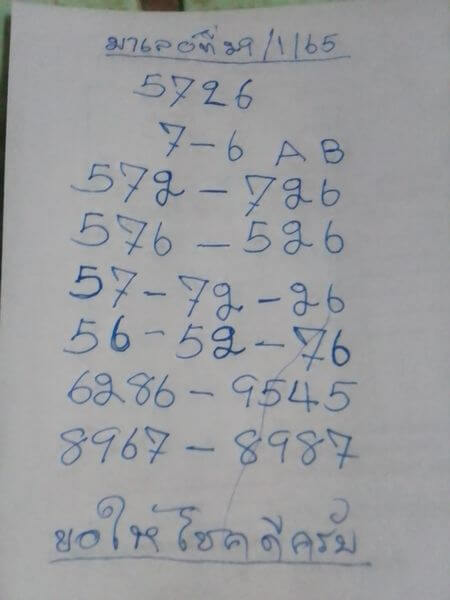 มาเลย์ที่ 29/1/65
5726
7-6 A B
572-726
576-526
57-72-26
56-52-76
6286-9545
8967-8987
ขอให้โชคดีครับ